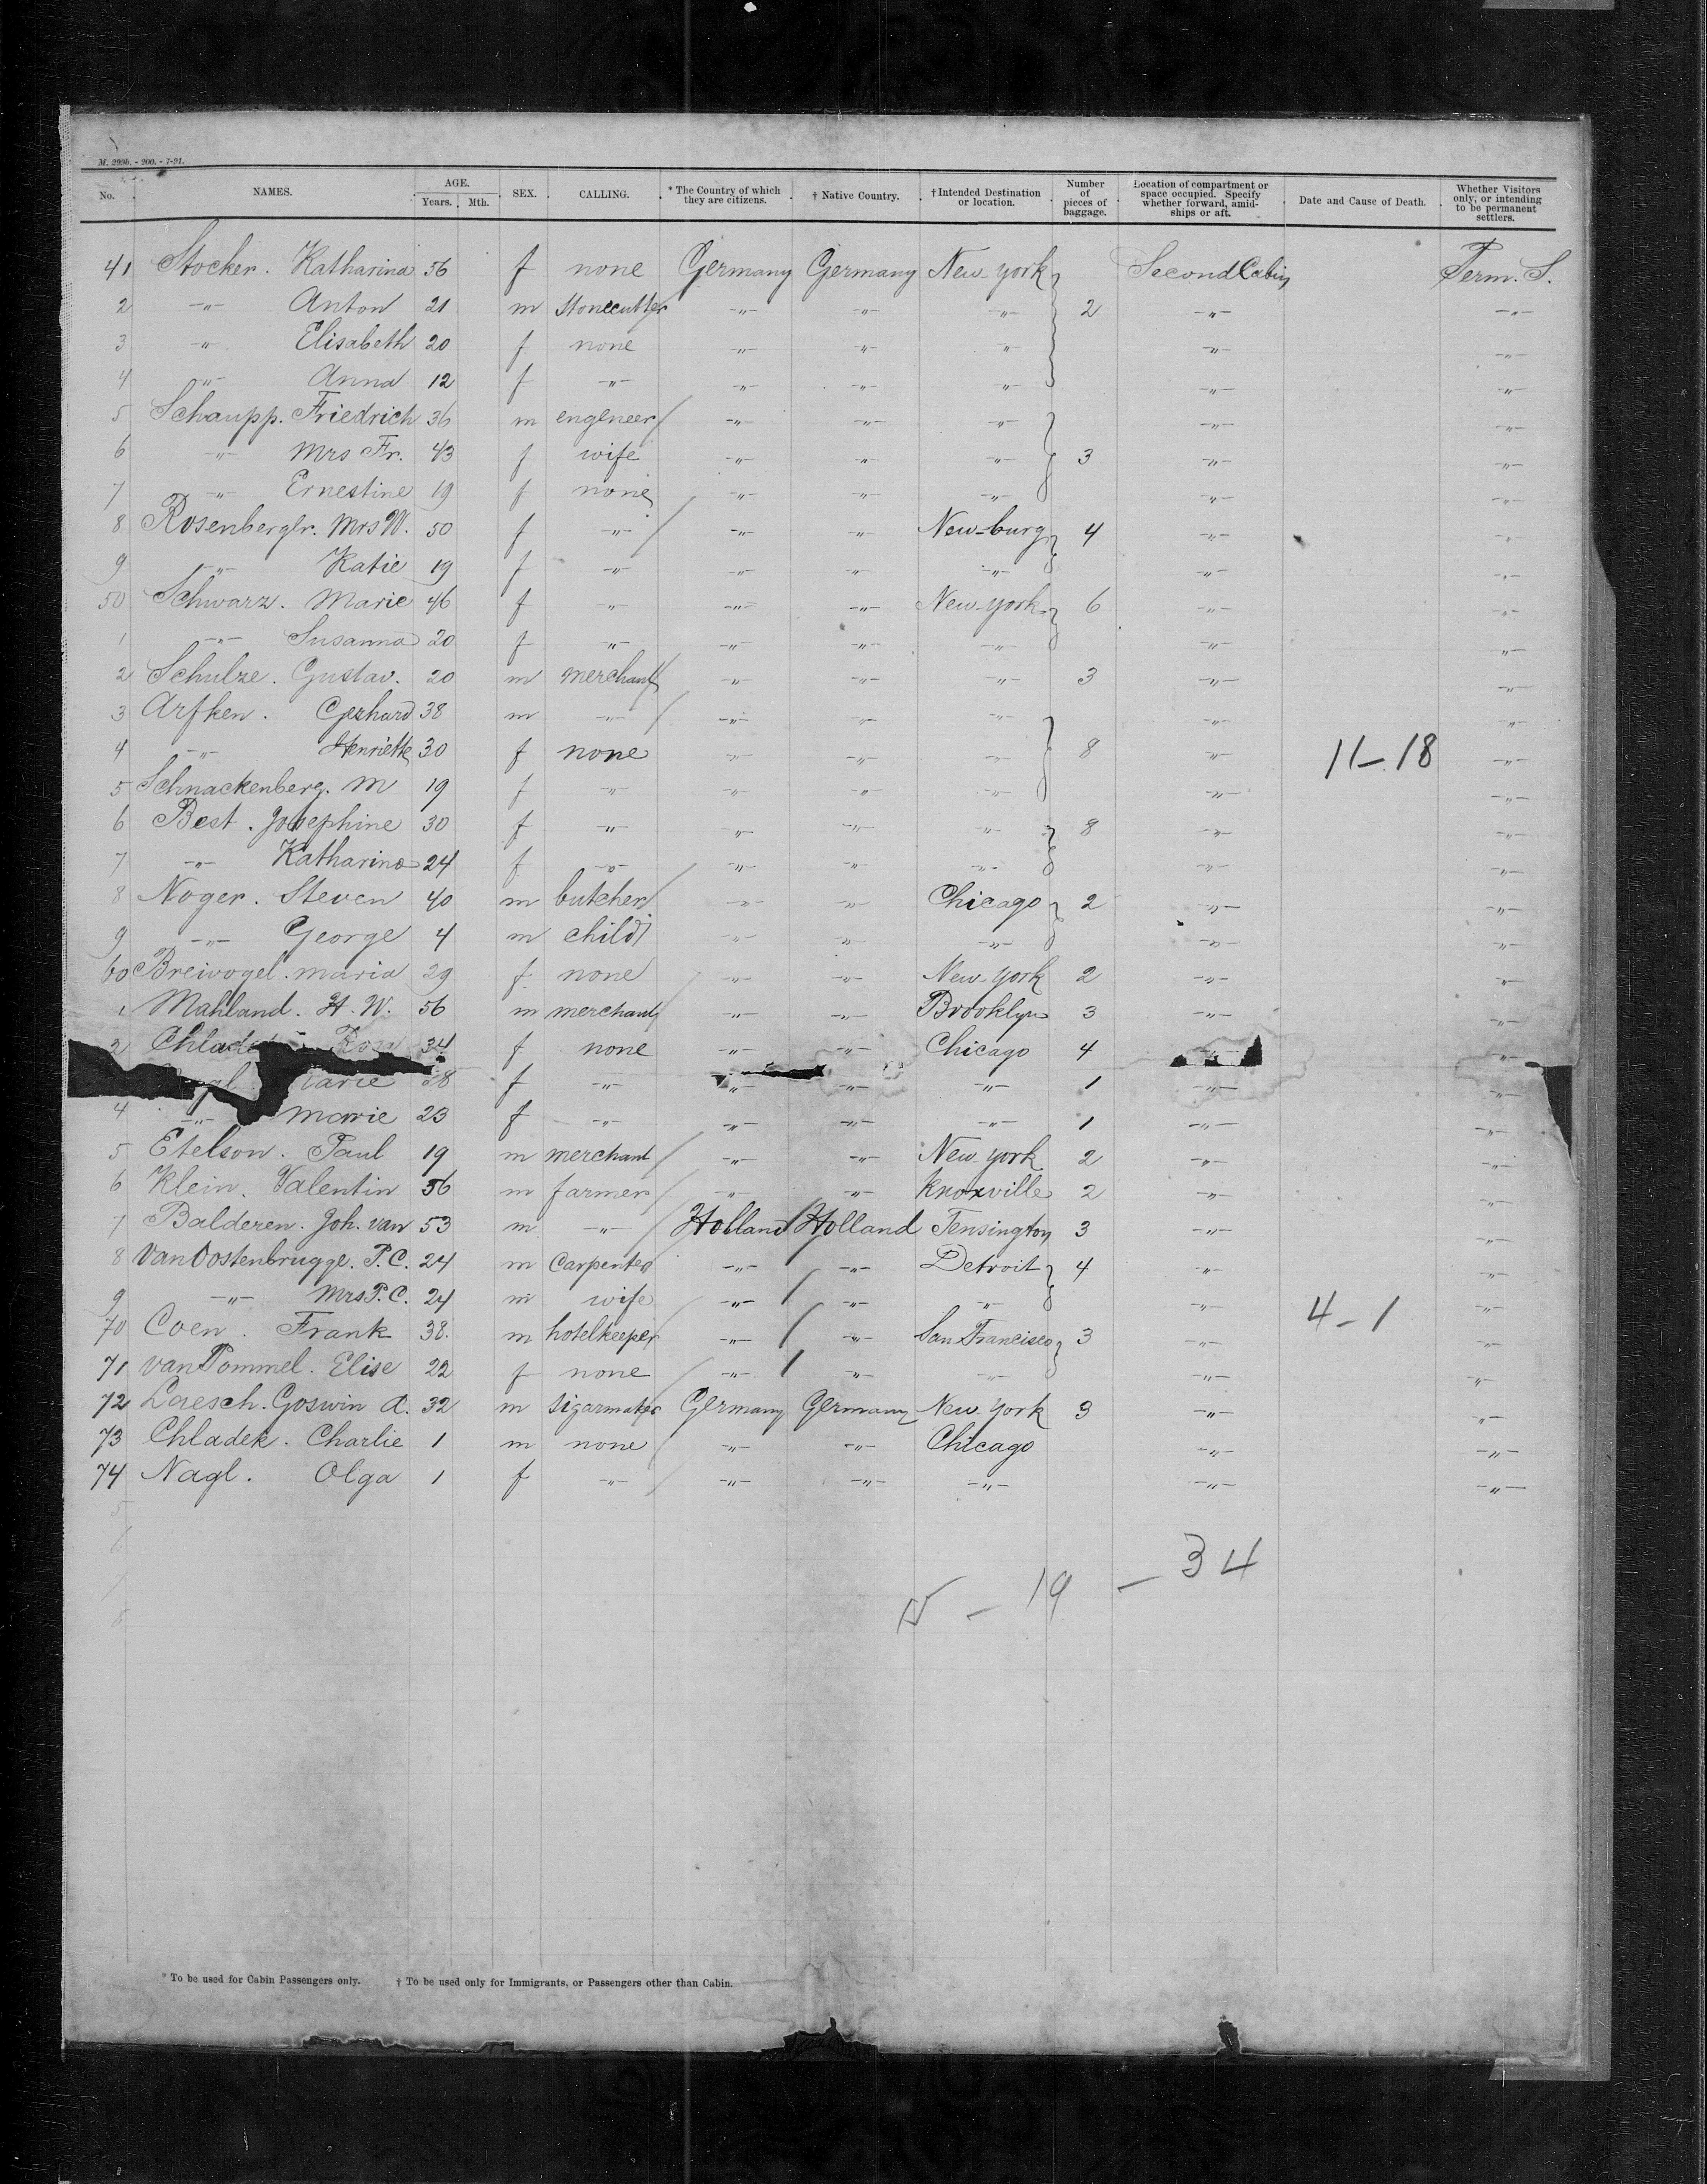 M. 299b. - 200. - 7-91.
No. NAMES. AGE. Years. Mth. SEX. CALLING. * The Country of which they are citizens. † Native Country. † Intended Destination or location. Number of pieces of baggage. Location of compartment or space occupied. Specify whether forward, amid-ships or aft. Date and Cause of Death. Whether Visitors only, or intending to be permanent settlers.
41 Stocker. Katharina 56 f none Germany Germany New-york Second Cabin Perm. S.
2 -„- Anton 21 m Stonecutter -„- -„- -„- 2 -„- -„-
3 -„- Elisabeth 20 f none -„- -„- -„- -„- -„-
4 -„- Anna 12 f -„- -„- -„- -„- -„- -„-
5 Schaupp. Friedrich 36 m engeneer -„- -„- -„- -„- -„-
6 -„- Mrs Fr. 43 f wife -„- -„- -„- 3 -„- -„-
7 -„- Ernestine 19 f none -„- -„- -„- -„- -„-
8 Rosenberglr. Mrs W. 50 f -„- -„- -„- New-burg 4 -„- -„-
9 -„- Katie 19 f -„- -„- -„- -„- -„- -„-
50 Schwarz. Marie 46 f -„- -„- -„- New-york 6 -„- -„-
1 -„- Susanna 20 f -„- -„- -„- -„- -„- -„-
2 Schulze. Gustav. 20 m merchant -„- -„- -„- 3 -„- -„-
3 Arfken. Gerhard 38 m -„- -„- -„- -„- -„- -„-
4 -„- Henriette 30 f none -„- -„- -„- 8 -„- 11-18 -„-
5 Schnackenberg. M 19 f -„- -„- -„- -„- -„- -„-
6 Best. Josephine 30 f -„- -„- -„- -„- 8 -„- -„-
7 -„- Katharina 24 f -„- -„- -„- -„- -„- -„-
8 Noger. Steven 40 m butcher -„- -„- Chicago 2 -„- -„-
9 -„- George 4 m child -„- -„- -„- -„- -„-
60 Breivogel. Maria 29 f none -„- -„- New-york 2 -„- -„-
1 Mahland. H. W. 56 m merchant -„- -„- Brooklyn 3 -„- -„-
2 Rosa 34 f none -„- -„- Chicago 4 -„- -„-
28 f -„- -„- -„- -„- 1 -„- -„-
4 -„- Marie 23 f -„- -„- -„- -„- 1 -„- -„-
5 Etelson. Paul 19 m merchant -„- -„- New-york 2 -„- -„-
6 Klein. Valentin 56 m farmer -„- -„- Knoxville 2 -„- -„-
7 Balderen. Joh. van 53 m -„- Holland Holland Tensington 3 -„- -„-
8 Van Oostenbrugge. P.C. 24 m Carpenter -„- -„- Detroit 4 -„- -„-
9 -„- Mrs P.C. 24 m wife -„- -„- -„- -„- 4-1 -„-
70 Coen. Frank 38. m hotelkeeper -„- -„- San Francisco 3 -„- -„-
71 van Pommel. Elise 22 f none -„- -„- -„- -„- -„-
72 Laesch. Goswin A. 32 m sigarmaker Germany Germany New York 3 -„- -„-
73 Chladek. Charlie 1 m none -„- -„- Chicago -„- -„-
74 Nagl. Olga 1 f -„- -„- -„- -„- -„- -„-
5
6
7
8
- 19 - 34
* To be used for Cabin Passengers only. † To be used only for Immigrants, or Passengers other than Cabin.